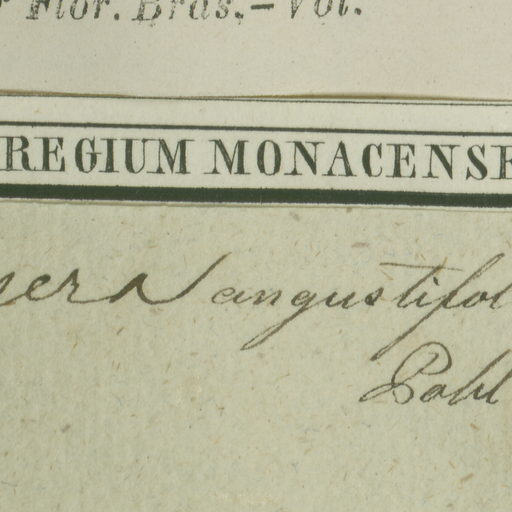 Flor. Bras.—Vol.
REGIUM MONACENSE
angustifol
Pohl